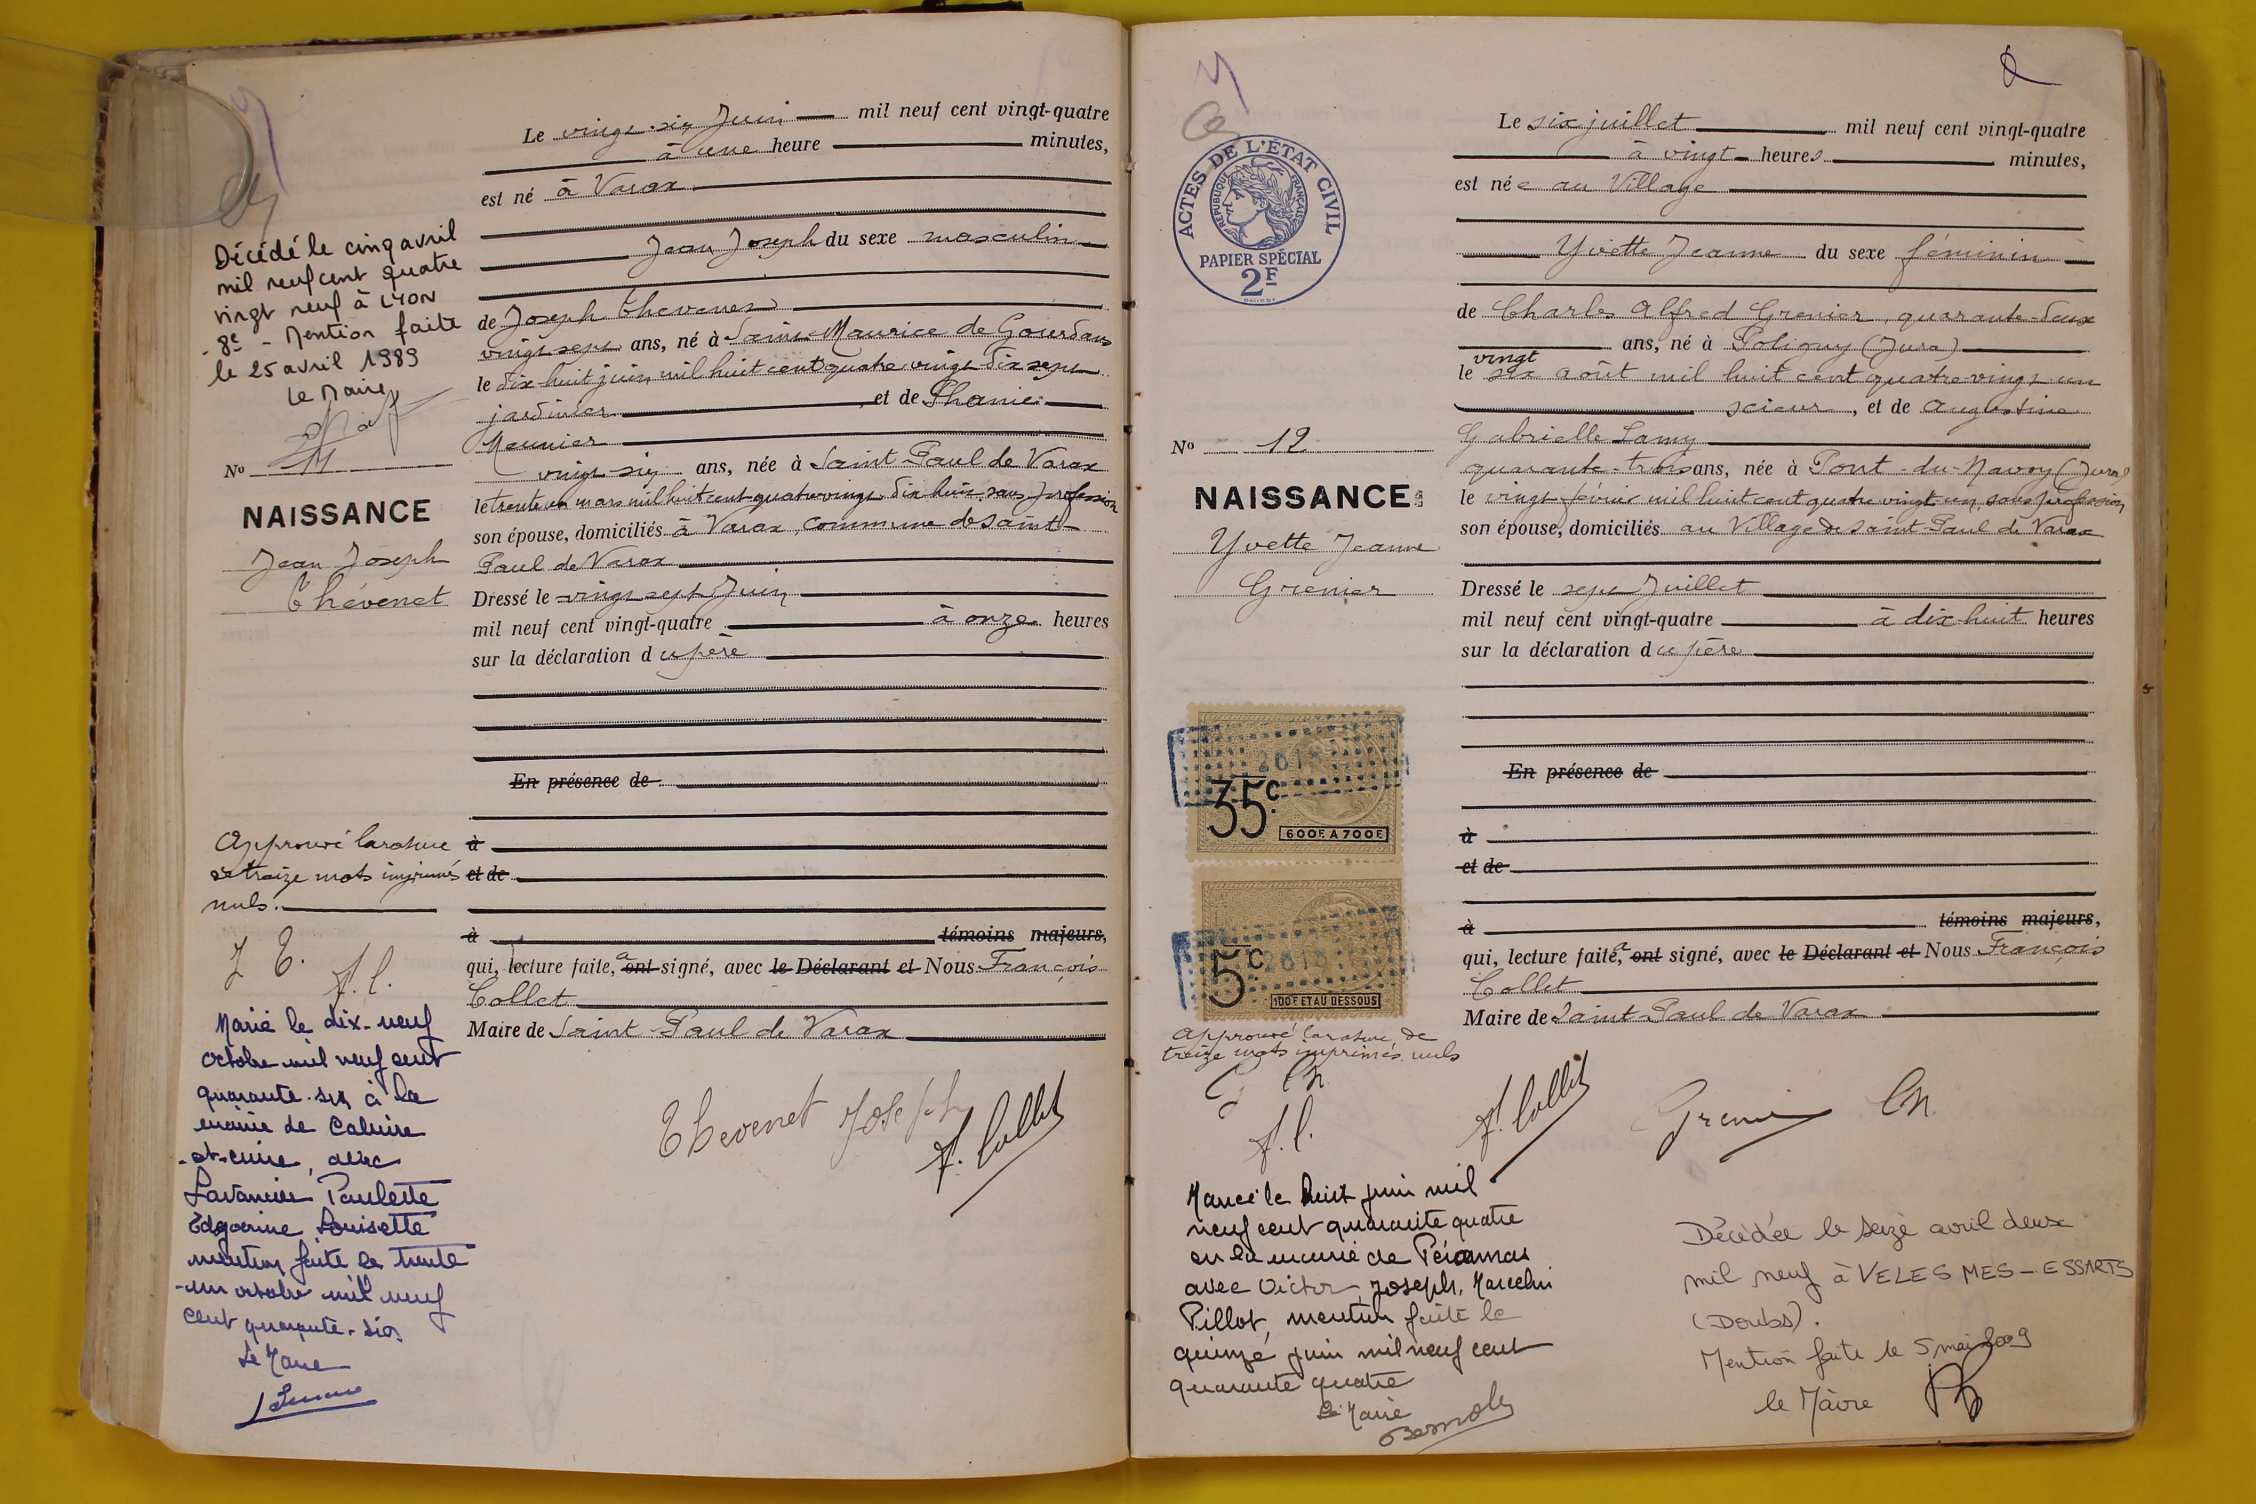 Le vingt-six Juin mil neuf cent vingt-quatre
à une heure minutes,
est né à Varax
Jean Joseph du sexe masculin
de Joseph Thévenet
vingt sept ans, né à Saint Maurice de Gourdans
le dix-huit juin mil huit cent quatre vingt dix sept
jardinier, et de Phanie
Meunier
vingt six ans, née à Saint Paul de Varax
le trente un mars mil huit cent quatre vingt dix huit sans profession
son épouse, domiciliés à Varax, commune de Saint-
Paul de Varax
Dressé le vingt sept Juin
mil neuf cent vingt-quatre à onze heures
sur la déclaration du père
En présence de
à
et de
à témoins majeurs,
qui, lecture faite, a ont signé, avec le Déclarant et Nous François
Collet
Maire de Saint-Paul de Varax
Thevenet Joseph
F. Collet
Décédé le cinq avril
mil neuf cent quatre
vingt neuf à LYON
- 8e - Mention faite
le 25 avril 1989
Le Maire
No 11
NAISSANCE
Jean Joseph
Thévenet
Approuvé la rature
de treize mots imprimés
nuls.
J T. F. C.
Marié le dix-neuf
octobre mil neuf cent
quarante-six à la
mairie de Caluire
-et-cuire, avec
Paulette
Louisette
mention faite le trente
-un octobre mil neuf
cent quarante-six
Le Maire
2
ACTES DE L'ÉTAT CIVIL
RÉPUBLIQUE FRANÇAISE
PAPIER SPÉCIAL
2F
Le six juillet mil neuf cent vingt-quatre
à vingt heures minutes,
est née au Village
Yvette Jeanne du sexe féminin
de Charles Alfred Grenier, quarante-deux
ans, né à Poligny (Jura)
vingt
le six août mil huit cent quatre vingt un
scieur, et de Augustine
Gabrielle Lamy
quarante-trois ans, née à Pont-du-Navoy (Jura)
le vingt février mil huit cent quatre vingt un, sans profession
son épouse, domiciliés au Village de Saint-Paul de Varax
Dressé le sept Juillet
mil neuf cent vingt-quatre à dix-huit heures
sur la déclaration du père
En présence de
à
et de
à témoins majeurs,
qui, lecture faite, a ont signé, avec le Déclarant et Nous François
Collet
Maire de Saint-Paul de Varax
No 12
NAISSANCE
Yvette Jeanne
Grenier
35c
600F A 700F
5c
100F ET AU DESSOUS
Approuvé la rature de
treize mots imprimés nuls
G Ch
F. C.
F. Collet
Grenier Ch
Mariée le huit juin mil
neuf cent quarante quatre
en la mairie de Péronnas
avec Victor, Joseph, Marcelin
Pillot, mention faite le
quinze juin mil neuf cent
quarante quatre
Le Maire
Décédée le seize avril deux
mil neuf à VELESMES-ESSARTS
(Doubs).
Mention faite le 5 mai 2009
le Maire